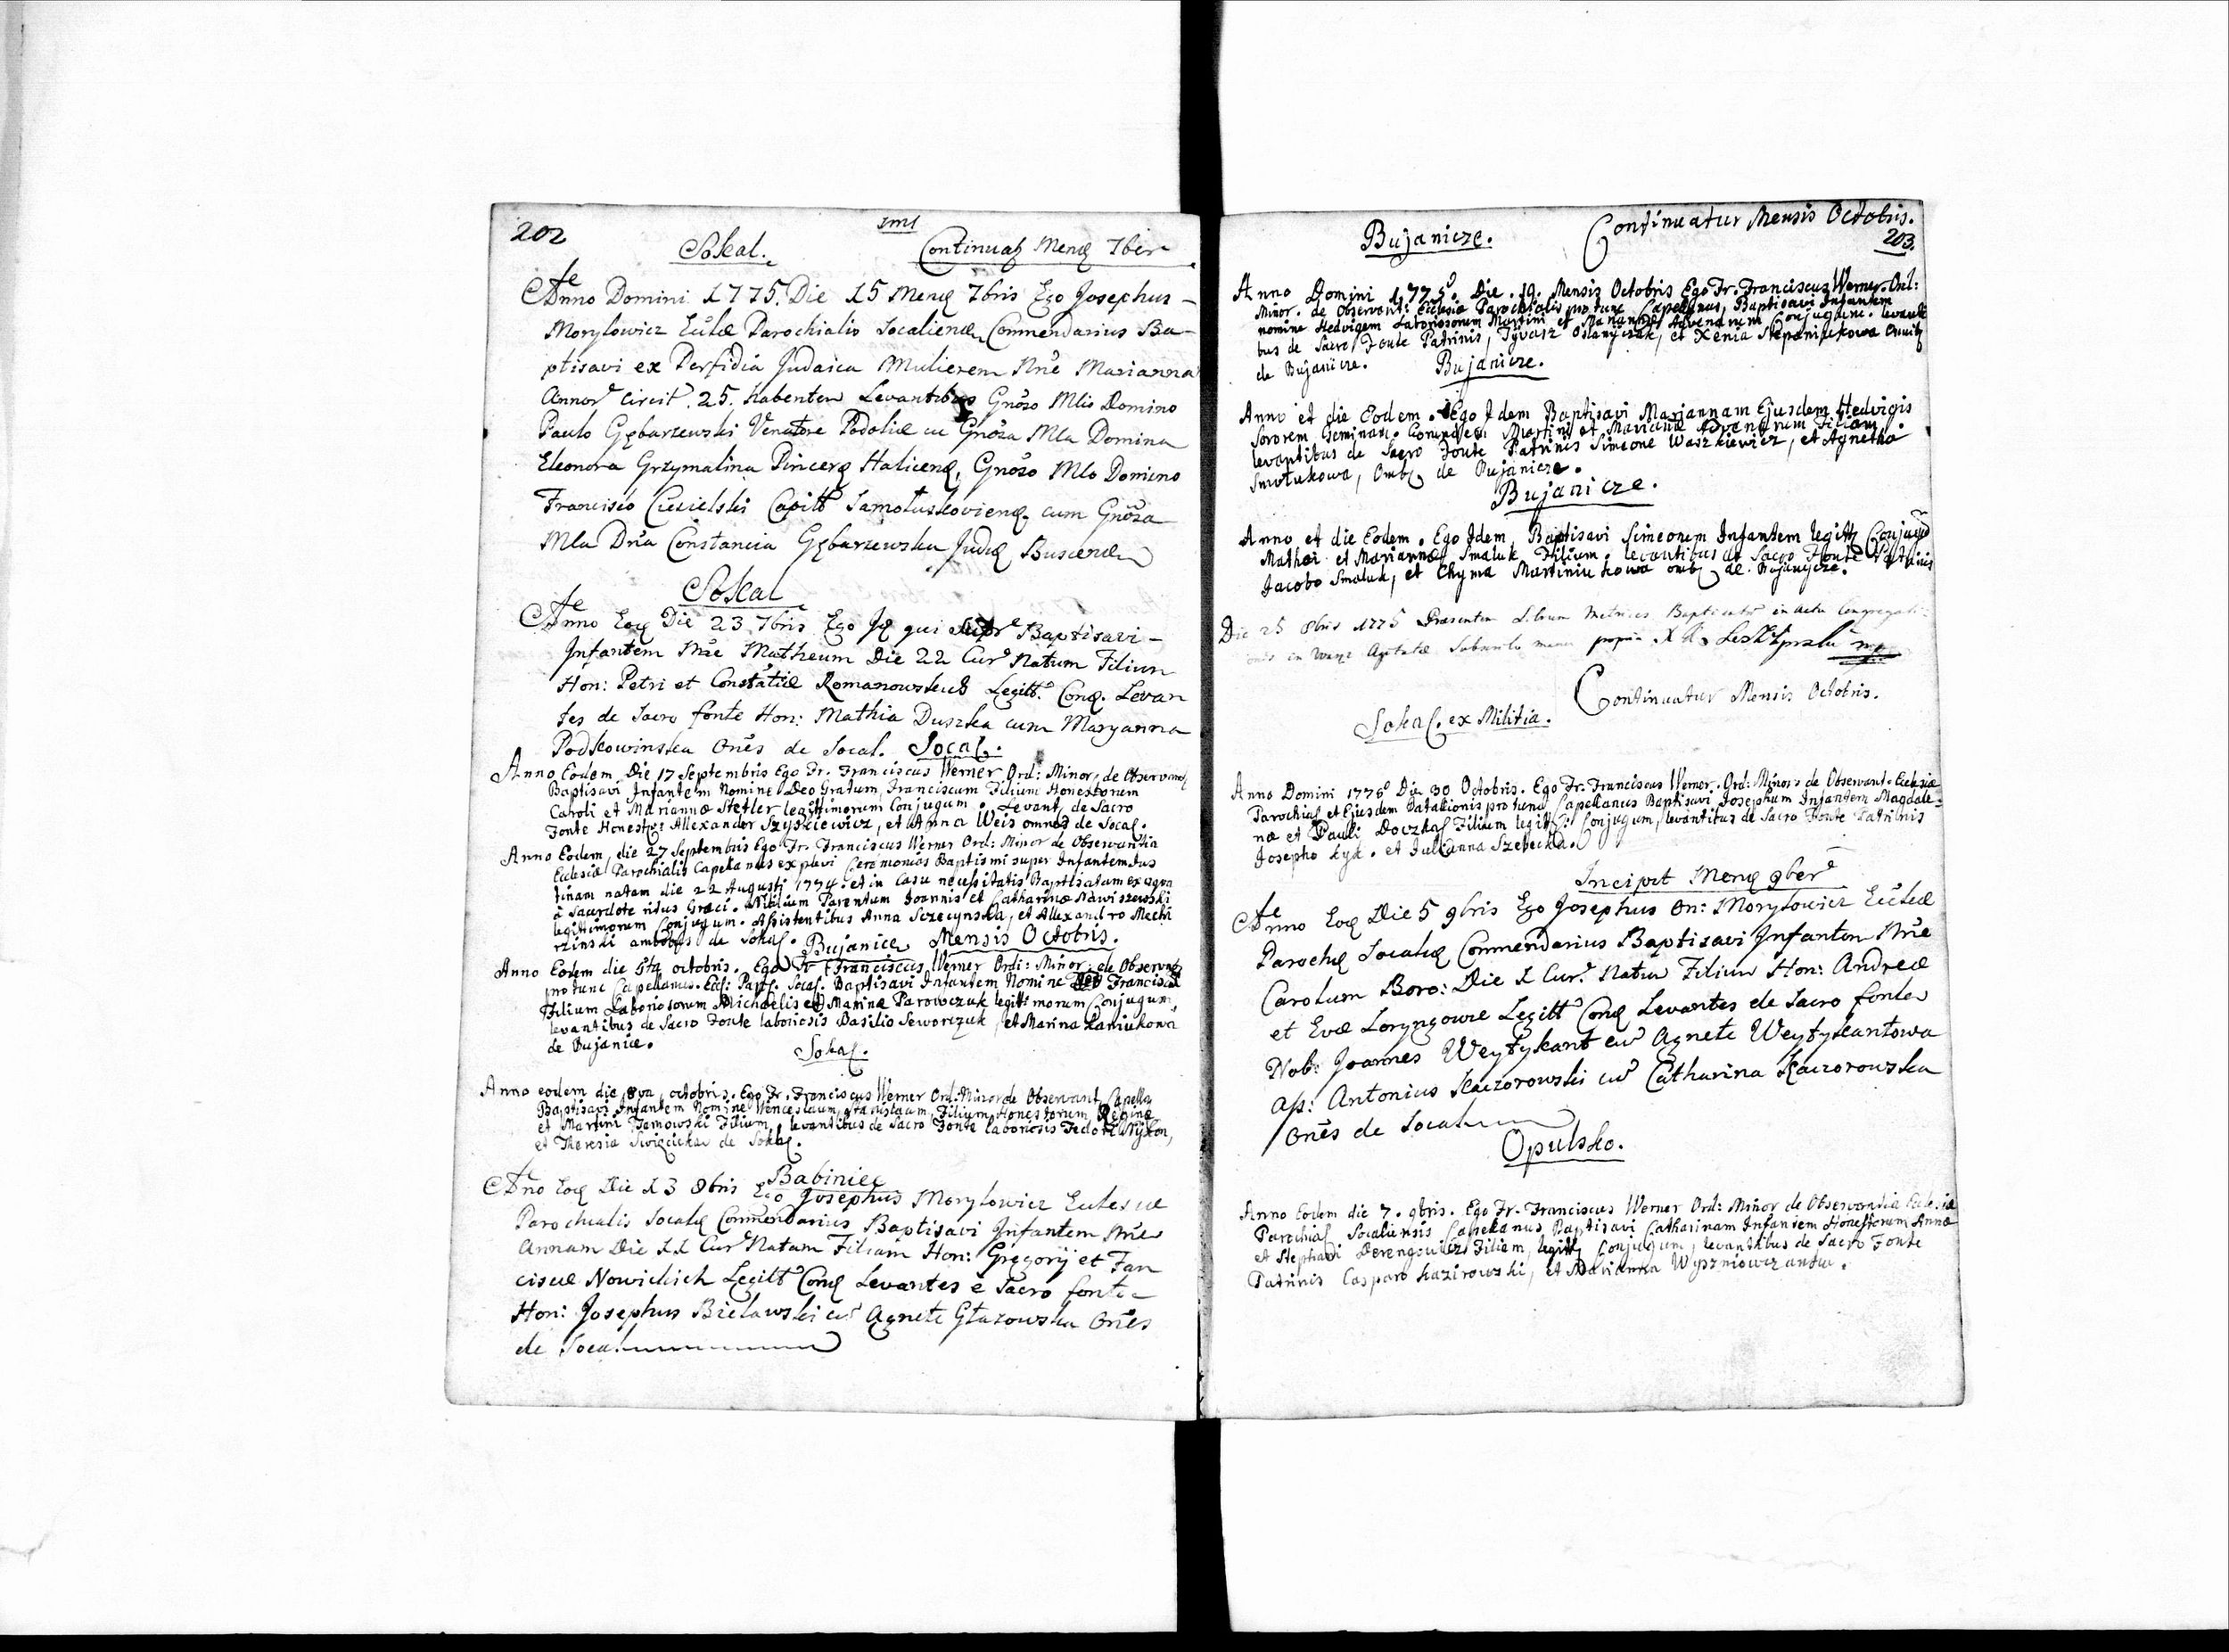 202
Sokal.
Continuatʒ Menʒ 7bēr
Anno Domini 1775. Die 15 Menʒ 7bris Ego Josephus -
Morylowicz Eccłæ Parochialis Socalienʒ Commendarius Ba-
ptisavi ex Perfidia Judaica Mulierem Nñe Marianna
Annor circit. 25. habentem Levantibus Gnoso Mlis Domino
Paulo Gębarzewski Venatore Podoliæ cu Gnosa Mla Domina
Eleonora Grzymalina Pincerʒ Halicenʒ, Gnoso Mlo Domino
Francisco Capitt cum Gnosa
Mla Dña Constancia Gębarzewska Judʒ Buscenʒ
Sokal
Anno Eoʒ Die 23 7bris Ego Jʒ qui supr Baptisavi -
Infantem Nñe Matheum Die 22 Cur Natum Filium
Hon: Petri et Constatiæ Romanowskich Legitt. Conʒ. Levan
tes de Sacro fonte Hon: Mathia Duszka cum Maryanna
Podkowinska Onēs de Socal. Socal.
Anno Eodem Die 17 Septembris Ego Fr. Franciscus Werner Ord: Minor, de Observanʒ
Baptisavi Infantem Nomine Deo Gratum, Franciscum Filium Honestorum
Caroli et Mariannæ Stetler legittimorum Conjugum. Levant. de Sacro
Fonte Honestʒ: Allexander Szyszkiewicz, et Anna Weis omnes de Socal.
Anno Eodem, die 27 Septembris Ego Fr. Franciscus Werner Ord: Minor de Observantia
Ecclesiæ Parochialis Capelanus explevi Ceremonias Baptismi super Infantem Jus
tinam natam die 22 Augusti 1774. et in Casu necessitatis Baptisatam ex aqua
à Sacerdote ritus Græci. Filiam Parentum Joannis et Catharinæ Nawiszewski
legittimorum Conjugum. Assistentibus Anna Sczecynska, et Allexandro Mechi
rzinski ambobus de Sokal. Bujanice Mensis Octobris.
Anno Eodem die 5ta octobris. Ego Fr Franciscus Werner Ordi: Minor: de Observanʒ
pro tunc Capellanus. Eccl: Par. Socal. Baptisavi Infantem Nomine Francisca
Filium Laboriosorum Michaelis et Marinæ Parowczuk legittimorum Conjugum,
levantibus de Sacro Fonte laboriosis Basilio Seworczuk, et Marina Laniukowa
de Bujanice.
Sokal.
Anno eodem die 8va, octobris. Ego Fr. Franciscus Werner Ord: Minor de Observant. Capella
Baptisavi Infantem Nomine Wenceslaum, Stanislaum, Filium Honestorum, Reginæ
et Martini Tarnowski Filium, levantibus de Sacro Fonte laboriosis Fedor
et Theresia de Sokal.
Babiniec
Anno Eoʒ Die 13 8bris Ego Josephus Morylowicz Eclesiæ
Parochialis Socalʒ Commendarius Baptisavi Infantem Nñe
Annam Die 11 Cur Natam Filiam Hon: Gregorij et Fan
ciscæ Nowickich Legitt Conʒ Levantes e Sacro fonte
Hon: Josephus Bielawski cu Agnete Głazowska Onēs
de Socal
Bujanicze.
Continuatur Mensis Octobris.
203.
Anno Domini 1775. Die. 19. Mensis Octobris Ego Fr. Franciscus Werner. Ord:
Minor. de Observant: Eclesiæ Parochialis pro tunc Capellanus, Baptisavi Infantem
nomine Hedvigem Laboriosorum Martini et Mariannæ Advenarum Conjugum. levanti
bus de Sacro Fonte Patrinis, Oslanyczak, et Xenia Stepaniukowa
de Bujanicze.
Bujanicze.
Anno et die Eodem. Ego Idem Baptisavi Mariannam Ejusdem Hedvigis
Sororem Geminam. Martini et Mariannæ Advenarum Filiam.
levantibus de Sacro Fonte Patrinis Simeone Waszkiewicz, et Agnetha
Smolukowa, Omb. de Bujanicze.
Bujanicze.
Anno et die Eodem. Ego Idem, Baptisavi Simeonem Infantem legittʒ Conjugum
Mathei et Mariannæ Smaluk Filium. levantibus de Sacro Fonte Patrinis
Jacobo Smaluk, et Chyma Martiniukowa omb. de Bujanycze.
Die 25 8bris 1775 Præsentem Librum Metrices Baptisator in Actu Congregati-
onis in Subscribo manu propria
Continuatur Mensis Octobris.
Sokal. ex Militia.
Anno Domini 1775 Die 30 Octobris. Ego Fr. Franciscus Werner. Ord: Minoris de Observant. Eclesiæ
Parochial et Ejusdem Batalionis pro tunc Capellanus Baptisavi Josephum Infantem Magdale-
næ et Pauli Doczkal Filium legittʒ: Conjugum, levantibus de Sacro Fonte Patrinis
Josepho Kyk. et Julianna Szebecka.
Incipit Menʒ 9ber
Anno Eoʒ Die 5 9bris Ego Josephus On: Morylowicz Eccłæ
Parochʒ Socalʒ Commendarius Baptisavi Infantem Nñe
Carolum Boro: Die 1 Cur. Natu Filium Hon: Andreæ
et Evæ Loryngowie Legitt Conʒ Levantes de Sacro fonte
Nob: Joannes Weytykant cu Agnete Weytykantowa
Ass: Antonius Kaczorowski cu Catharina Kaczorowska
Onēs de Socal
Opulsko.
Anno Eodem die 7. 9bris. Ego Fr. Franciscus Werner Ord: Minor de Observantia Eclesiæ
Parochial Socaliensis Capelanus Baptisavi Catharinam Infantem Honestorum Annæ
et Stephani Derengowicz Filiam, legittʒ Conjugum, levantibus de Sacro Fonte
Patrinis Casparo Kazirowski, et Marianna